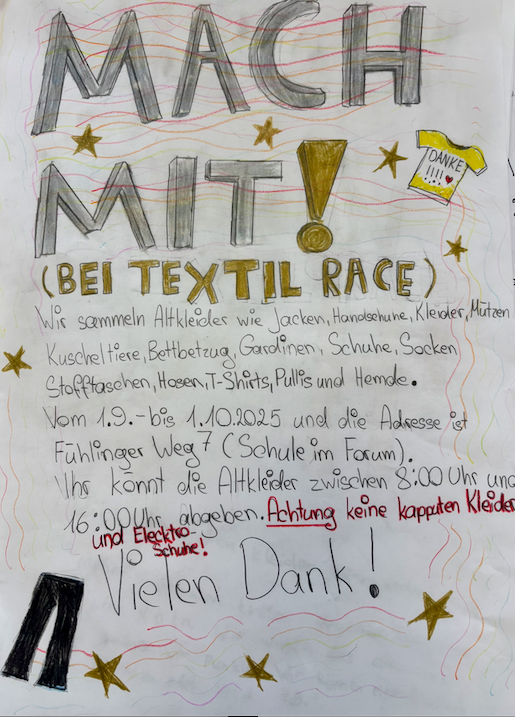 MACH
MIT!
DANKE
!!!!
(BEI TEXTIL RACE)
Wir sammeln Altkleider wie Jacken, Handschuhe, Kleider, Mützen
Kuscheltiere, Bettbetzug, Gardinen, Schuhe, Socken
Stofftaschen, Hosen, T-Shirts, Pullis und Hemde.
Vom 1.9.-bis 1.10.2025 und die Adresse ist
Fühlinger Weg 7 (Schule im Forum).
Ihr könnt die Altkleider zwischen 8:00 Uhr und
16:00 Uhr abgeben. Achtung keine kapputen Kleider
und Elecktro-
Schuhe!
Vielen Dank!